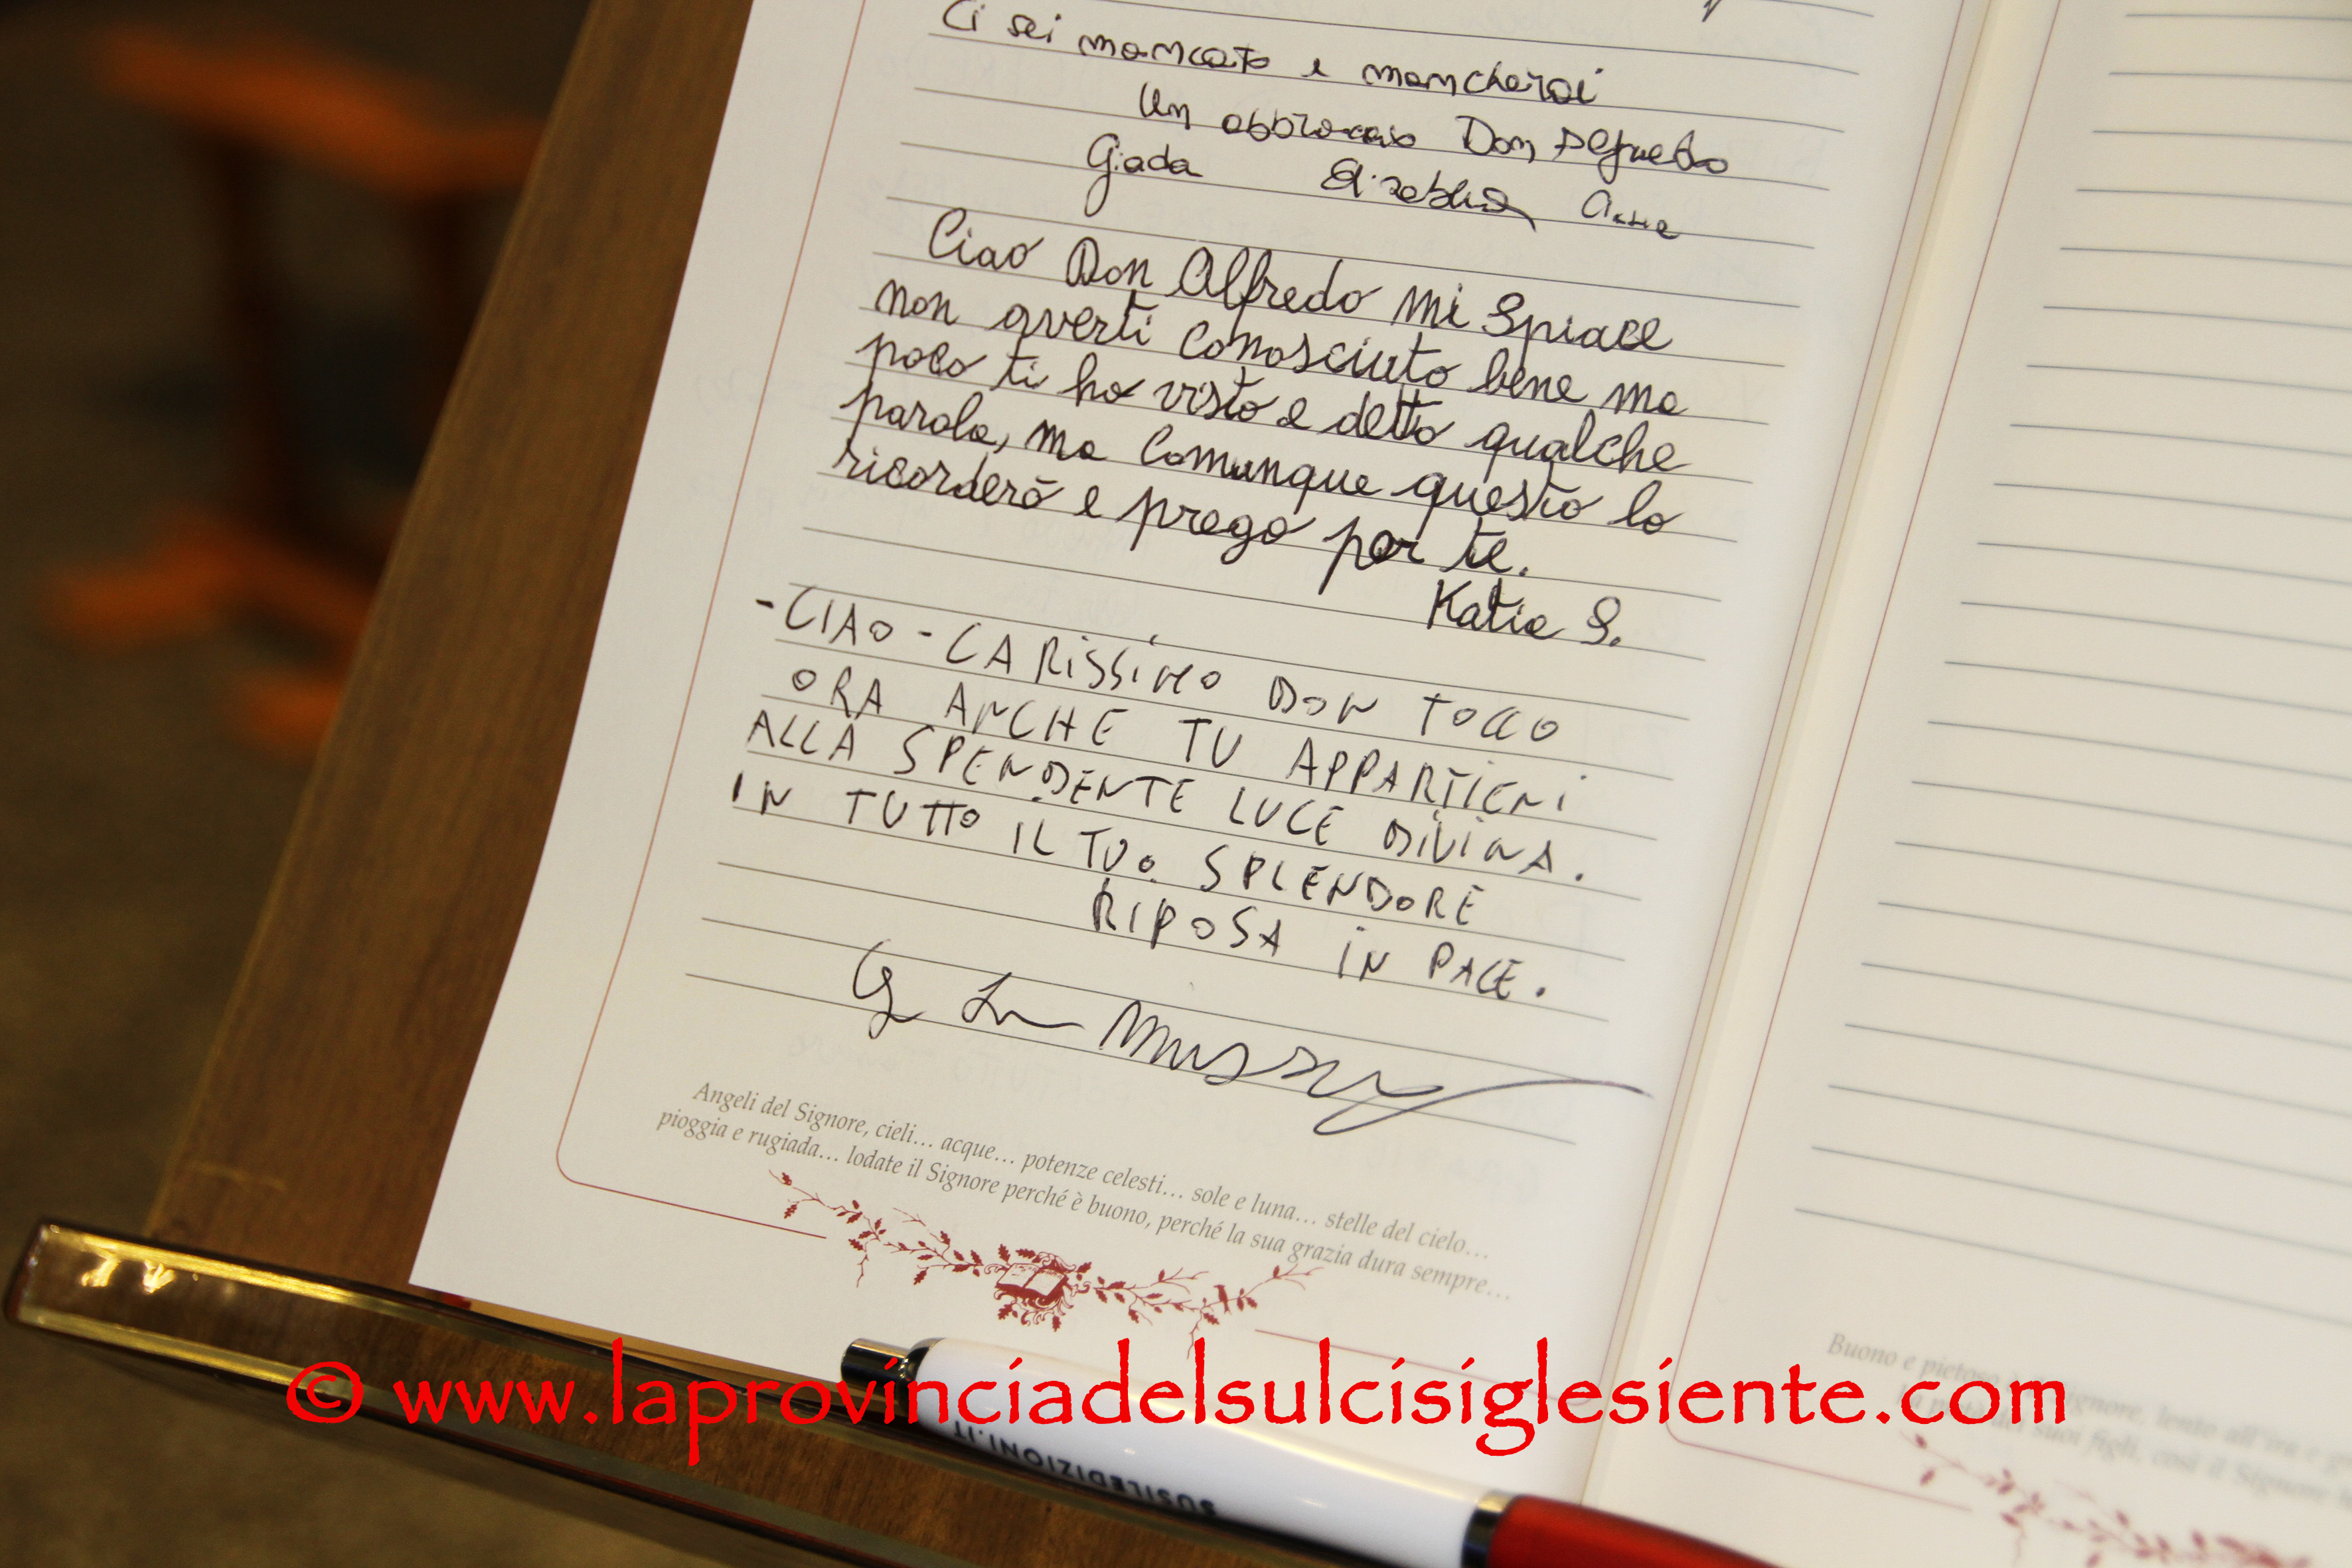 Ci sei mancato e mancherai
Un abbraccio Don Alfredo
Giada Elisabetta Anna
Ciao Don Alfredo mi spiace
non averti conosciuto bene ma
poco ti ho visto e detto qualche
parola, ma comunque questo lo
ricorderò e prego per te.
Katia S.
- CIAO - CARISSIMO DON TOCCO
ORA ANCHE TU APPARTIENI
ALLA SPENDENTE LUCE DIVINA.
IN TUTTO IL TUO SPLENDORE
RIPOSA IN PACE.
Angeli del Signore, cieli... acque... potenze celesti... sole e luna... stelle del cielo...
pioggia e rugiada... lodate il Signore perché è buono, perché la sua grazia dura sempre...
© www.laprovinciadelsulcisiglesiente.com
SUSILEDIZIONI.IT
Buono e pietoso Signore, lento all'ira e
dei suoi figli, così il Signore